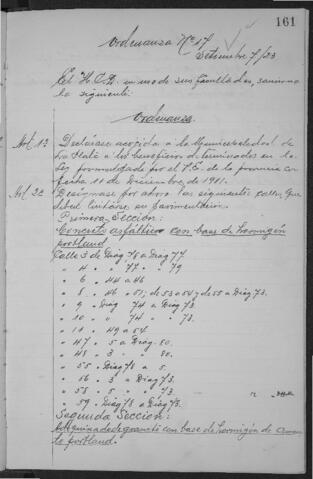 161
Ordenanza No 17
Setiembre 7/23
El H.C.D. en uso de sus facultades, sanciona
la siguiente:
Ordenanza
Art 1º Declárase acogida a la Municipalidad de
La Plata a los beneficios determinados en la
Ley promulgada por el P.E. de la provincia con
fecha 11 de Diciembre de 1921.
Art 2º Desígnase por ahora las siguientes calles que
deben licitarse su pavimentación.
Primera Sección:
Concreto asfáltico con base de hormigón
portland
Calle 3 de Diag 78 a Diag 77.
" 4 " " 77 " 79
" 6 " 44 a 46
" 8 " 46 " 51; de 53 a 54 y de 55 a Diag 73.
" 9 " Diag 74 a Diag 73.
" 10 " " 74 " " 73.
" 11 " 49 a 54
" 47 " 5 a Diag. 80.
" 48 " 3 " " 80.
" 55 " Diag 78 a 5.
" 56 " 3 a Diag 73.
" 58 " 5 " " 73
" 59 " Diag 78 a Diag 73.
Segunda Sección:
Adoquinado de granito con base de hormigón de Cemen
to portland.